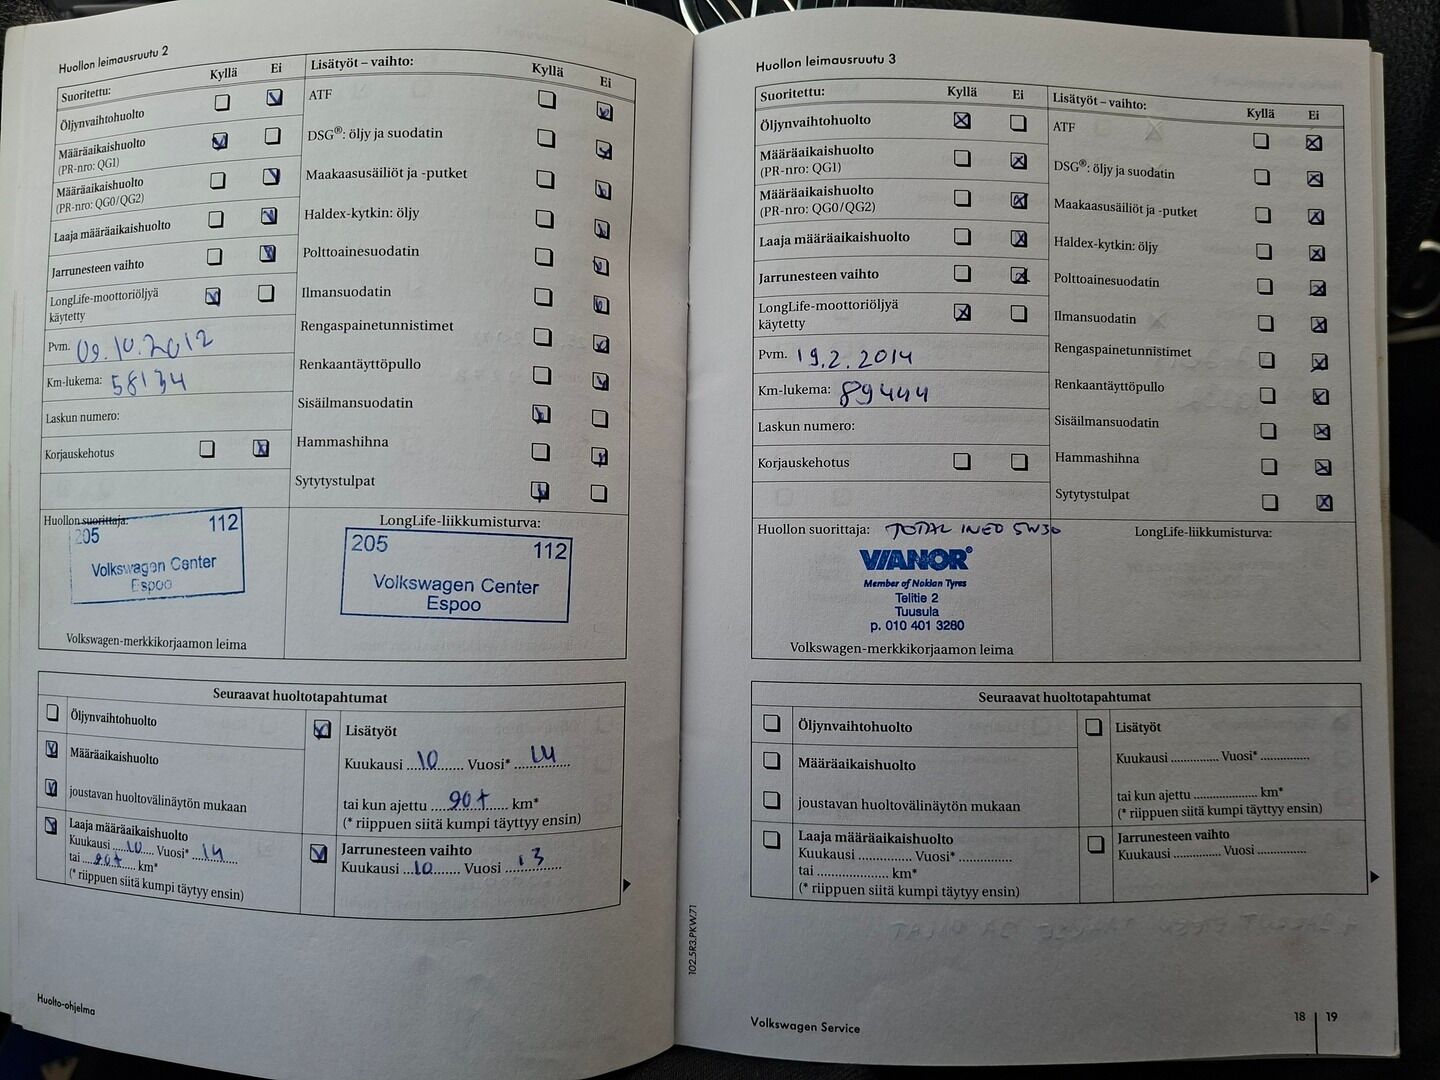 Huollon leimausruutu 2
Suoritettu: Kyllä Ei
Öljynvaihtohuolto
Määräaikaishuolto
(PR-nro: QG1)
Määräaikaishuolto
(PR-nro: QG0/QG2)
Laaja määräaikaishuolto
Jarrunesteen vaihto
LongLife-moottoriöljyä
käytetty
Pvm. 09.10.2012
Km-lukema: 58134
Laskun numero:
Korjauskehotus
Lisätyöt – vaihto: Kyllä Ei
ATF
DSG®: öljy ja suodatin
Maakaasusäiliöt ja -putket
Haldex-kytkin: öljy
Polttoainesuodatin
Ilmansuodatin
Rengaspainetunnistimet
Renkaantäyttöpullo
Sisäilmansuodatin
Hammashihna
Sytytystulpat
Huollon suorittaja:
205 112
Volkswagen Center
Espoo
Volkswagen-merkkikorjaamon leima
LongLife-liikkumisturva:
205 112
Volkswagen Center
Espoo
Seuraavat huoltotapahtumat
Öljynvaihtohuolto
Määräaikaishuolto
joustavan huoltovälinäytön mukaan
Laaja määräaikaishuolto
Kuukausi ...10...... Vuosi* ..14........
tai ...90t........ km*
(* riippuen siitä kumpi täytyy ensin)
Lisätyöt
Kuukausi ...10......... Vuosi* ....14..........
tai kun ajettu .....90t........ km*
(* riippuen siitä kumpi täyttyy ensin)
Jarrunesteen vaihto
Kuukausi ...10......... Vuosi ....13.........
Huolto-ohjelma
102.5R3.PKW.71
Huollon leimausruutu 3
Suoritettu: Kyllä Ei
Öljynvaihtohuolto
Määräaikaishuolto
(PR-nro: QG1)
Määräaikaishuolto
(PR-nro: QG0/QG2)
Laaja määräaikaishuolto
Jarrunesteen vaihto
LongLife-moottoriöljyä
käytetty
Pvm. 19.2.2014
Km-lukema: 89444
Laskun numero:
Korjauskehotus
Lisätyöt – vaihto: Kyllä Ei
ATF
DSG®: öljy ja suodatin
Maakaasusäiliöt ja -putket
Haldex-kytkin: öljy
Polttoainesuodatin
Ilmansuodatin
Rengaspainetunnistimet
Renkaantäyttöpullo
Sisäilmansuodatin
Hammashihna
Sytytystulpat
Huollon suorittaja: TOTAL INEO 5W30
VIANOR®
Member of Nokian Tyres
Telitie 2
Tuusula
p. 010 401 3280
Volkswagen-merkkikorjaamon leima
LongLife-liikkumisturva:
Seuraavat huoltotapahtumat
Öljynvaihtohuolto
Määräaikaishuolto
joustavan huoltovälinäytön mukaan
Laaja määräaikaishuolto
Kuukausi ............... Vuosi* ...............
tai .................... km*
(* riippuen siitä kumpi täytyy ensin)
Lisätyöt
Kuukausi .............. Vuosi* ..............
tai kun ajettu .................... km*
(* riippuen siitä kumpi täyttyy ensin)
Jarrunesteen vaihto
Kuukausi .............. Vuosi ..............
Volkswagen Service
18 19